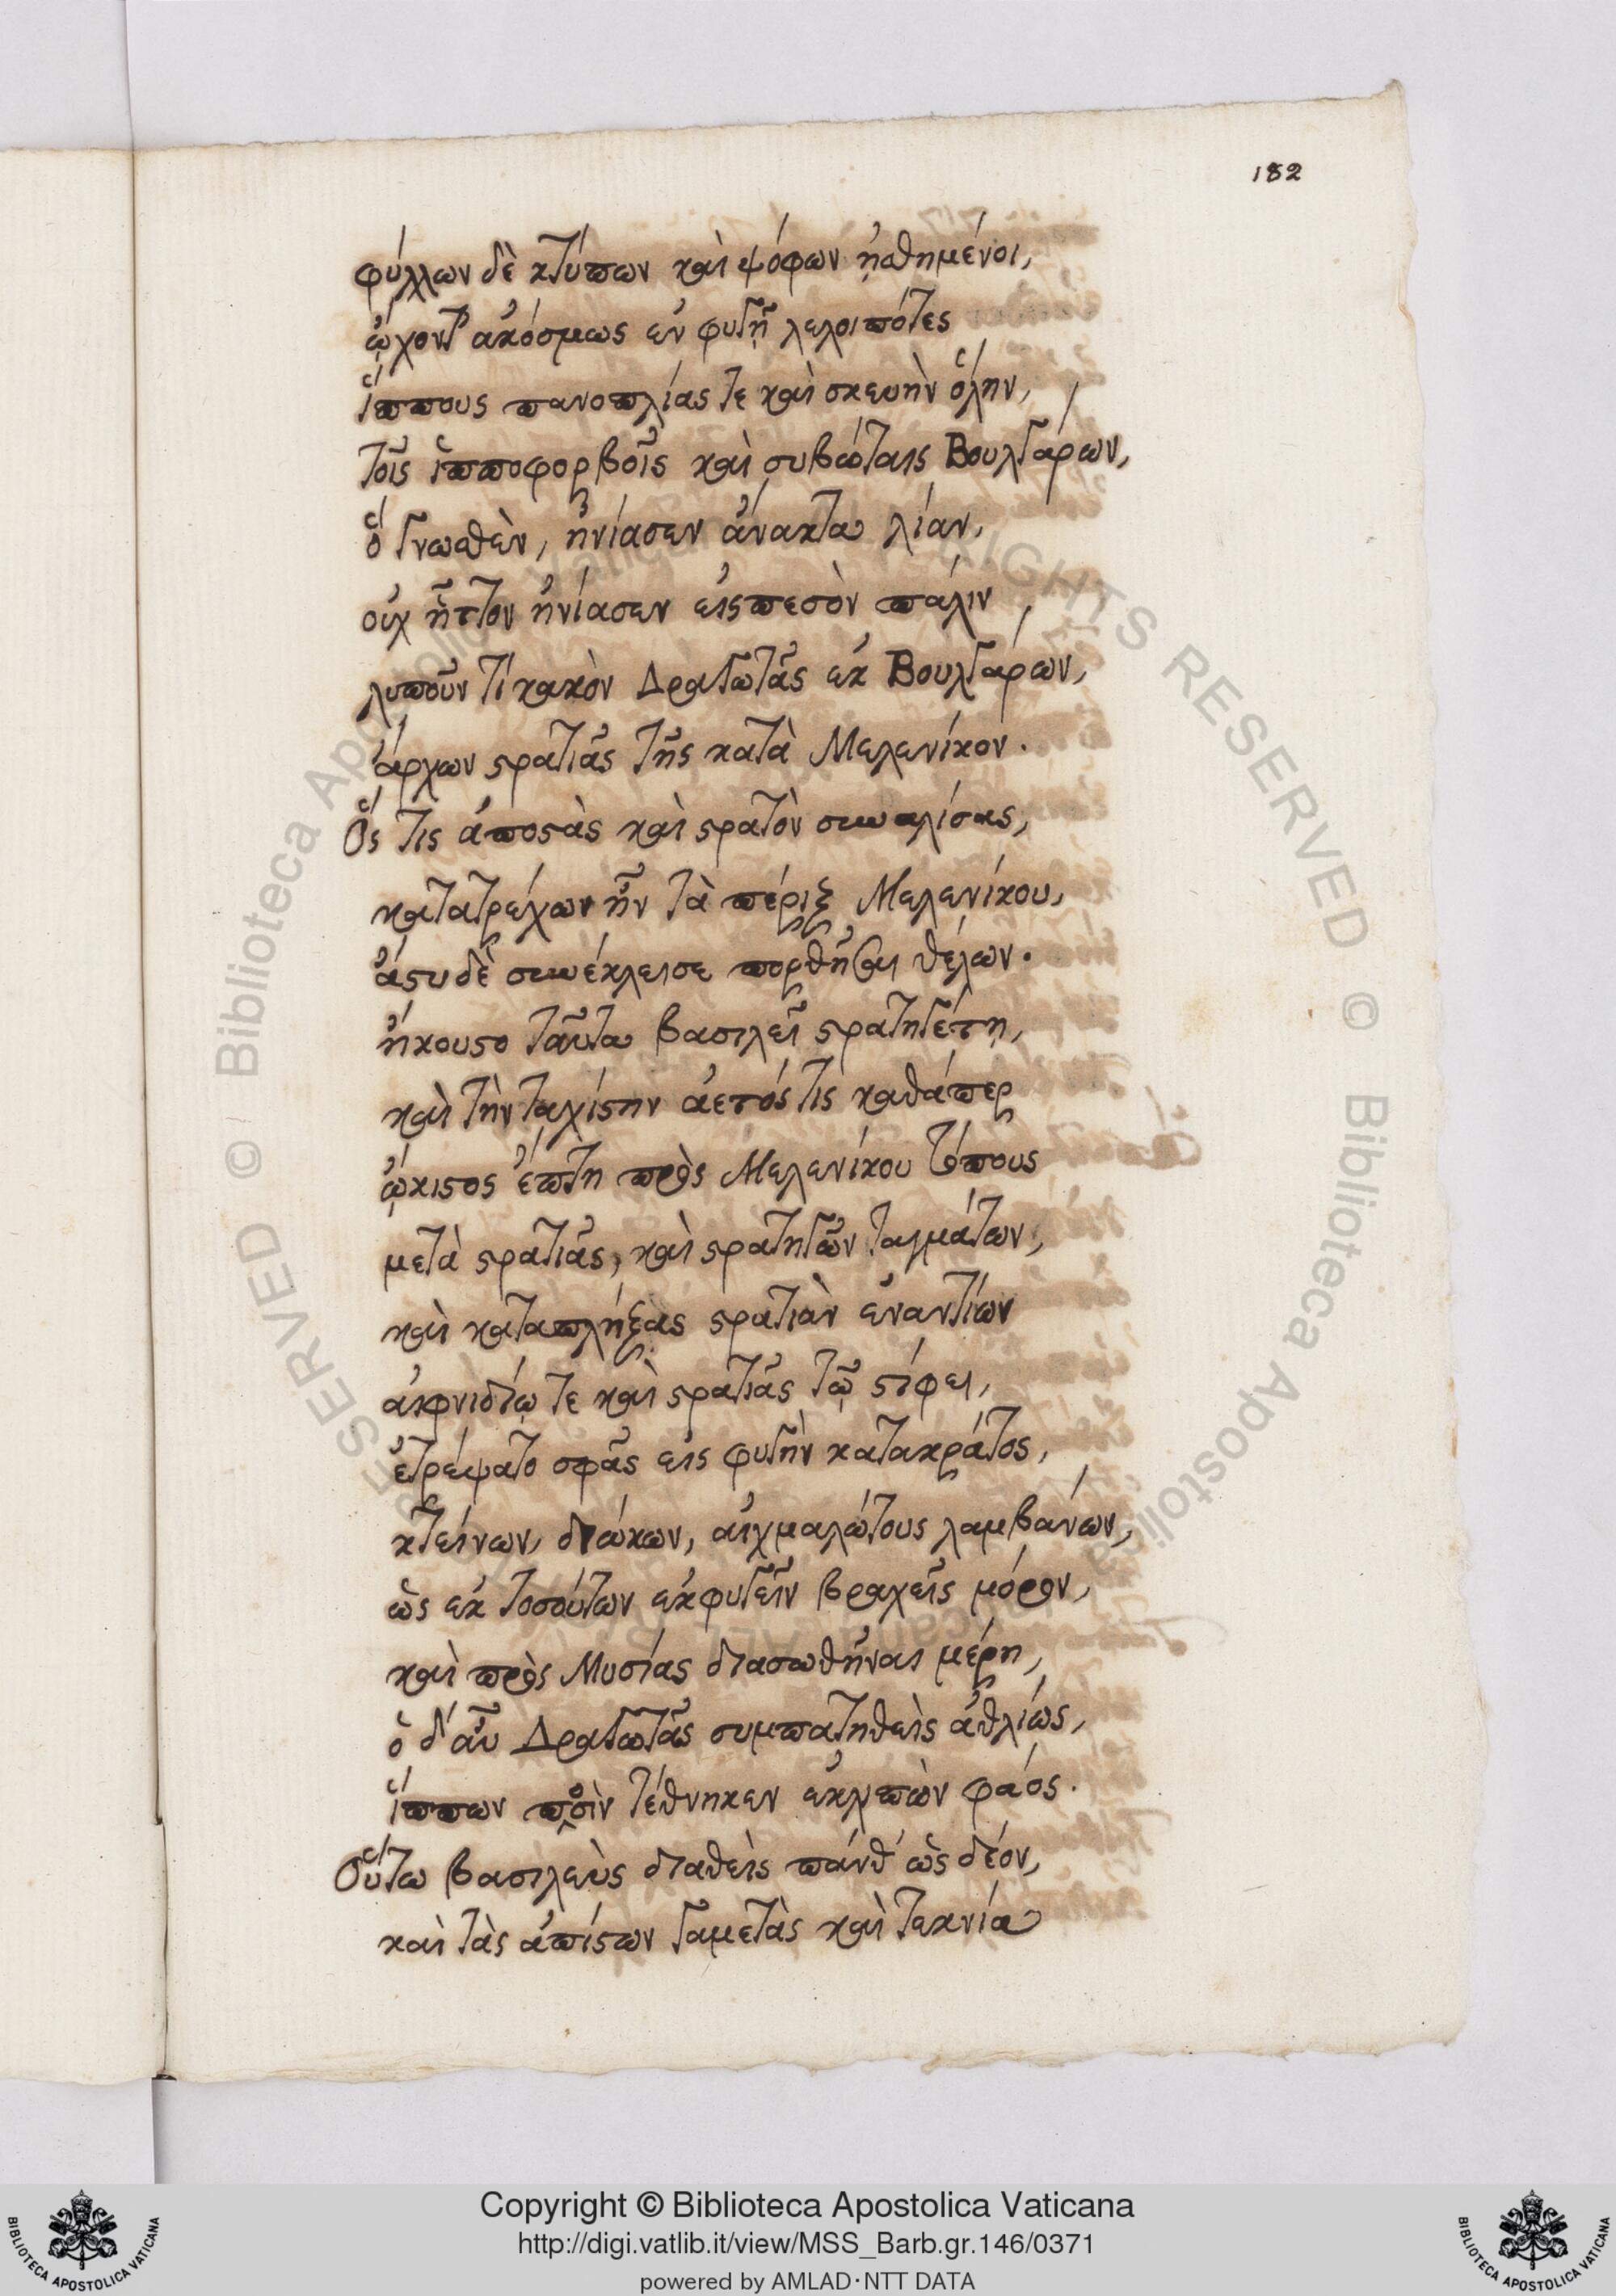 182
φύλλων δὲ κτύπων καὶ ψόφων ᾐσθημένοι,
ᾤχοντ' ἀκόσμως ἐν φυγῇ λελοιπότες
ἵππους πανοπλίας τε καὶ σκευὴν ὅλην,
τοῖς ἱπποφορβοῖς καὶ συβώταις Βουλγάρων,
ὃ γνωσθὲν, ἠνίασεν ἄνακτα λίαν,
οὐχ ἧττον ἠνίασεν εἰσπεσὸν πάλιν
λυποῦν τί κακὸν Δραγωτᾶς ἐκ Βουλγάρων,
ἄρχων στρατιᾶς τῆς κατὰ Μελενίκον.
Ὅς τις ἀποστὰς καὶ στρατὸν συναλίσας,
κατατρέχων ἦν τὰ πέριξ Μελενίκου,
ἄστυ δὲ συνέκλεισε πορθῆσαι θέλων.
ἤκουστο ταῦτα βασιλεῖ στρατηγέτῃ,
καὶ τὴν ταχίστην ἀετός τις καθάπερ
ᾤκιστος ἔπτη πρὸς Μελενίκου τόπους
μετὰ στρατιᾶς, καὶ στρατηγῶν ταγμάτων,
καὶ καταπλήξας στρατιὰν ἐναντίων
αἰφνιδίῳ τε καὶ στρατιᾶς τῷ στίφει,
ἐτρέψατο σφᾶς εἰς φυγὴν κατακράτος,
κτείνων, διώκων, αἰχμαλώτους λαμβάνων,
ὡς ἐκ τοσούτων ἐκφυγεῖν βραχεῖς μόρον,
καὶ πρὸς Μυσίας διασωθῆναι μέρη,
ὁ δ' αὖ Δραγωτᾶς συμπατηθεὶς ἀθλίως,
ἵππων ποσὶν τέθνηκεν ἐκλιπὼν φάος.
Οὕτω βασιλεὺς διαθεὶς πάνθ' ὡς δέον,
καὶ τὰς ἀπίστων γαμετὰς καὶ τεκνία
Copyright © Biblioteca Apostolica Vaticana
http://digi.vatlib.it/view/MSS_Barb.gr.146/0371
powered by AMLAD·NTT DATA
BIBLIOTECA APOSTOLICA VATICANA
BIBLIOTECA APOSTOLICA VATICANA